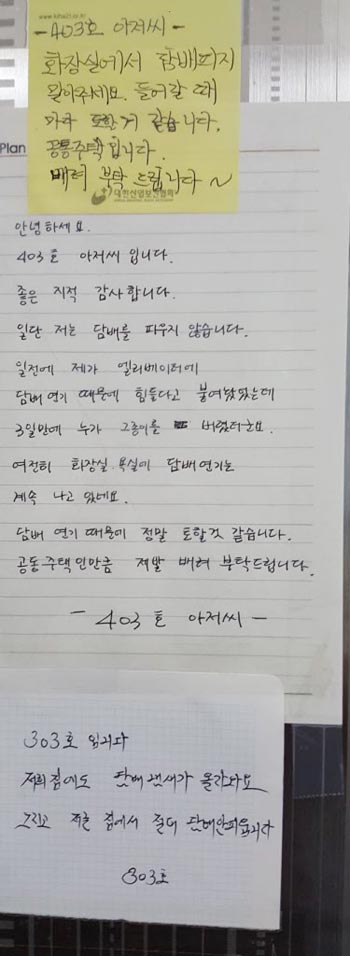 www.kiha21.or.kr
-403호 아저씨-
화장실에서 담배피지
말아주세요. 들어갈 때
마다 토할거 같습니다.
공통주택입니다.
배려 부탁드립니다~
대한산업보건협회
Plan
안녕하세요.
403호 아저씨 입니다.
좋은 지적 감사합니다.
일단 저는 담배를 피우지 않습니다.
일전에 제가 엘리베이터에
담배 연기 때문에 힘들다고 붙여놨었는데
3일만에 누가 그종이를 버렸더군요.
여전히 화장실.욕실에 담배연기는
계속 나고 있네요.
담배 연기 때문에 정말 토할것 같습니다.
공동주택인만큼 제발 배려 부탁드립니다.
- 403호 아저씨 -
303호 입니다
저희집에도 담배냄새가 올라와요
그리고 저흰 집에서 절대 담배안피웁니다
303호